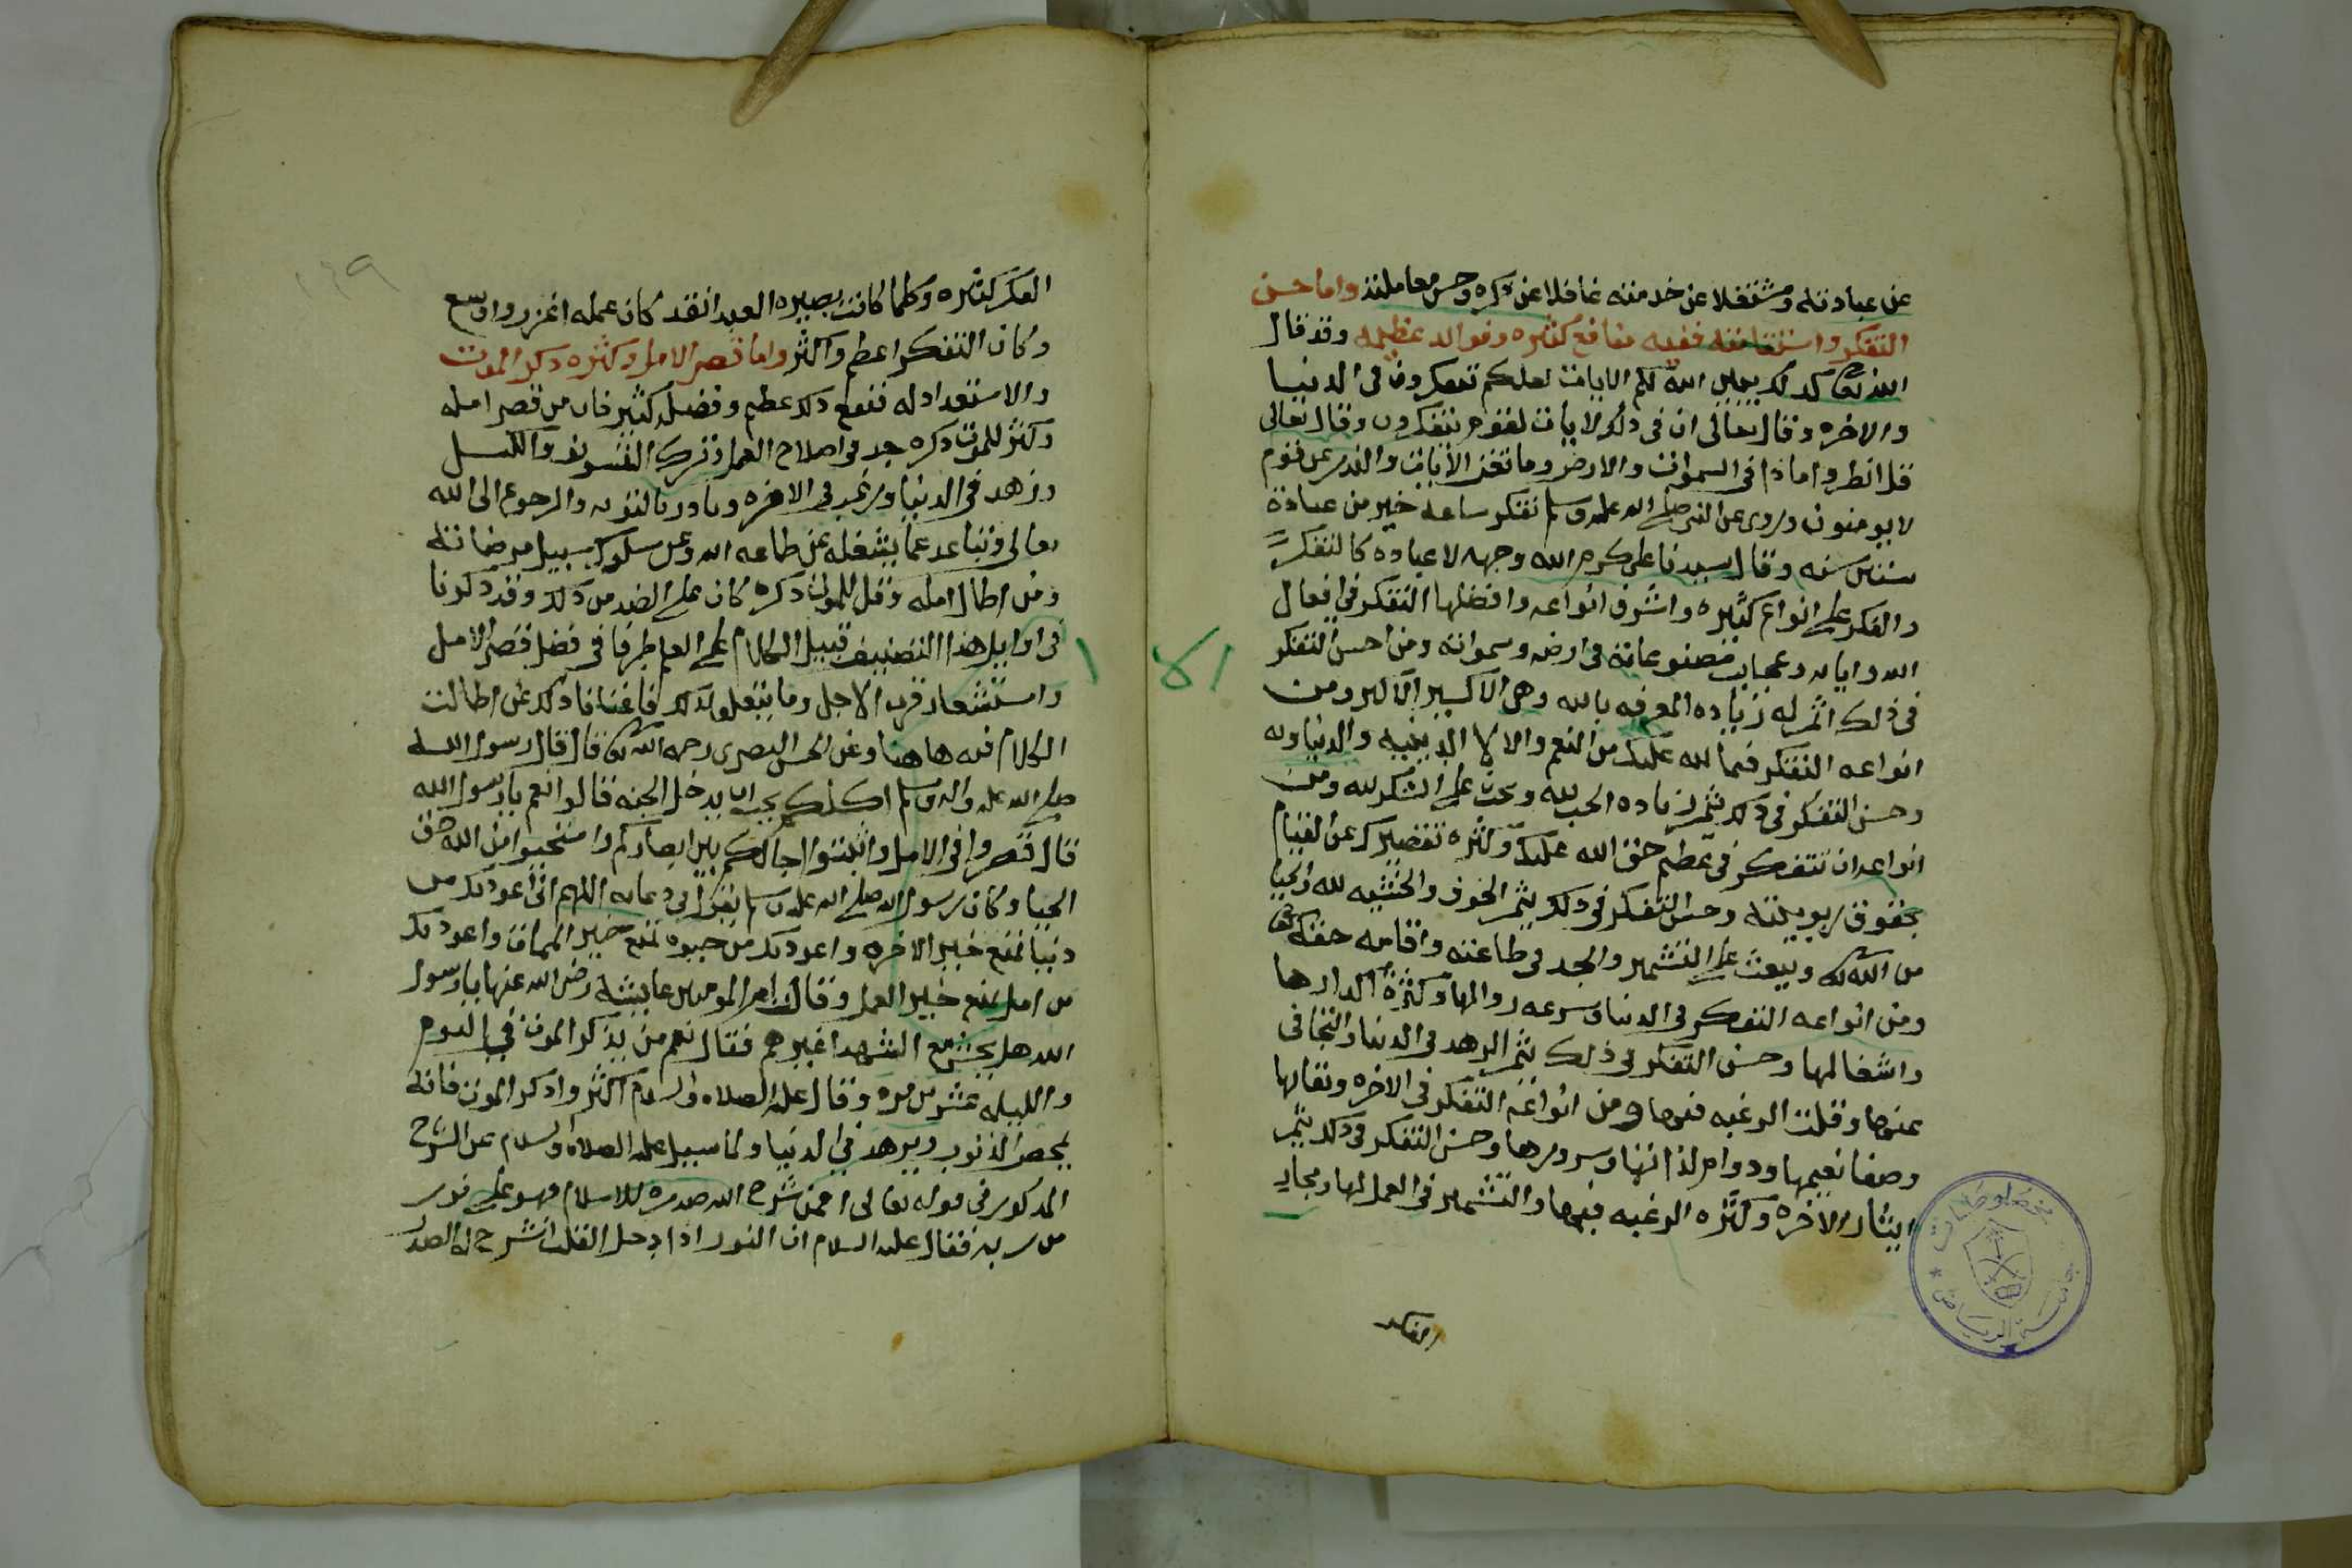 عن عبادته ومشتغلا عن خدمته غافلا عن ذكره وحسن معاملته واما حسن
التفكر واستقامته ففيه منافع كثيره وفوائد عظيمه وقد قال
الله تعالى كذلك يبين الله لكم الايات لعلكم تتفكرون في الدنيا
والاخره وقال تعالى ان في ذلك لايات لقوم يتفكرون وقال تعالى
قل انظروا ماذا في السموات والارض وما تغني الايات والنذر عن قوم
لا يومنون وروي عن النبي صلى الله عليه وسلم تفكر ساعه خير من عبادة
ستين سنه وقال سيدنا علي كرم الله وجهه لا عباده كالتفكر
والفكر على انواع كثيره واشرف انواعه وافضلها التفكر في افعال
الله واياته وعجايب مصنوعاته في ارضه وسمواته ومن احسن التفكر
في ذلك اثمر له زياده المعرفه بالله وهي الاكسير الاكبر ومن
انواعه التفكر فيما لله عليك من النعم والالا الدينيه والدنياويه
وحسن التفكر في ذلك يثمر زياده الحب لله ويحث على الشكر لله ومن
انواعه ان تتفكر في عظيم حق الله عليك وكثره تقصيرك عن القيام
بحقوق ربوبيته وحسن التفكر في ذلك يثمر الخوف والخشيه لله والحيا
من الله تعالى ويبعث على التشمير والجد في طاعته واقامه حقه تعالى
ومن انواعه التفكر في الدنيا وسرعه زوالها وكثرة اكدارها
واشغالها وحسن التفكر في ذلك يثمر الزهد في الدنيا والتجافى
عنها وقلت الرغبه فيها ومن انواعه التفكر في الاخره وبقايها
وصفا نعيمها ودوام لذاتها وسرورها وحسن التفكر في ذلك يثمر
ايثار الاخره وكثره الرغبه فيها والتشمير في العمل لها ومجاري
الفكر
مخطوطات
جامعة الرياض
١٣٩
الفكر كثيره وكلما كانت بصيره العبد انفذ كان علمه اغزر واوسع
وكان التفكر اعظم واكثر واما قصر الامل وكثره ذكر الموت
والاستعداد له فنفع ذلك عظيم وفضله كثير فان من قصر امله
وكثر للموت ذكره جد في اصلاح العمل وترك التسويف والكسل
وزهد في الدنيا ورغب في الاخره وبادر بالتوبه والرجوع الى الله
تعالى وتباعد عما يشغله عن طاعه الله وعن سلوك سبيل مرضاته
ومن اطال امله وقل للموت ذكره كان على الضد من ذلك وقد ذكرنا
في اوايل هذا التصنيف قبيل الكلام على العلم طرفا في فضل قصر الامل
واستشعار قرب الاجل وما يتعلق بذلك فاغنانا ذلك عن اطالت
الكلام فيه هاهنا وعن الحسن البصري رحمه الله تعالى قال قال رسول الله
صلى الله عليه واله وسلم اكلكم يحب ان يدخل الجنه قالوا نعم يا رسول الله
قال قصروا في الامل واثبتوا اجالكم بين ابصاركم واستحيوا من الله حق
الحيا وكان رسول الله صلى الله عليه وسلم يقول في دعايه اللهم اني اعوذ بك من
دنيا تمنع خير الاخره واعوذ بك من حيوه تمنع خير الممات واعوذ بك
من امل يمنع خير العمل وقالت ام المومنين عايشة رضي الله عنها يا رسول
الله هل يحشر مع الشهدا غيرهم فقال نعم من يذكر الموت في اليوم
والليله عشرين مره وقال عليه الصلاه والسلام اكثروا ذكر الموت فانه
يمحص الذنوب ويزهد في الدنيا ولما سيل عليه الصلاه والسلام عن الشرح
المذكور في قوله تعالى افمن شرح الله صدره للاسلام فهو على نور
من ربه فقال عليه السلام ان النور اذا دخل القلب انشرح له الصدر